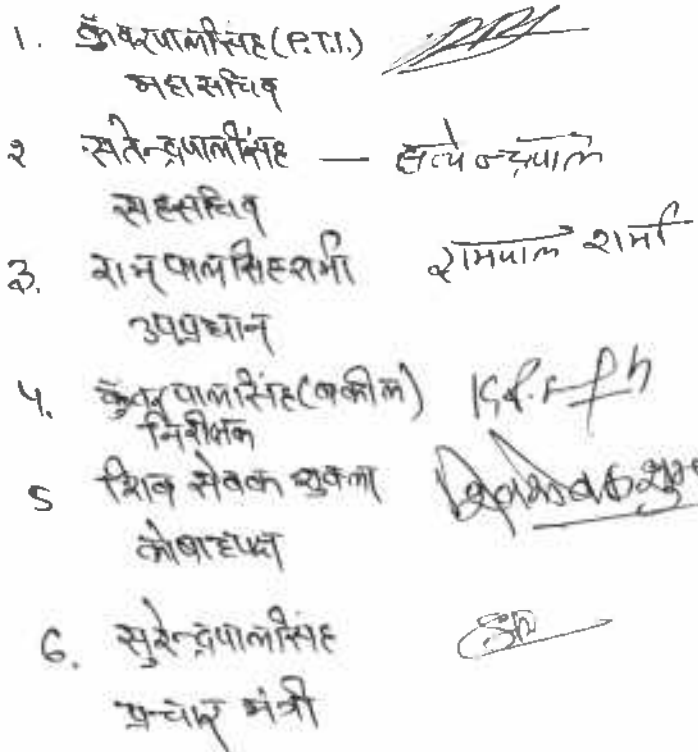 1. कुँवरपालसिंह (P.T.I.)
महासचिव
२ सतेन्द्रपालसिंह — सत्येन्द्रपाल
सहसचिव
3. रामपालसिंह शर्मा रामपाल शर्मा
उपप्रधान
4. कुँवरपालसिंह (वकील)
निरीक्षक
5 शिव सेवक शुक्ला शिवसेवक शुक्ल
कोषाध्यक्ष
6. सुरेन्द्रपालसिंह
प्रचार मंत्री